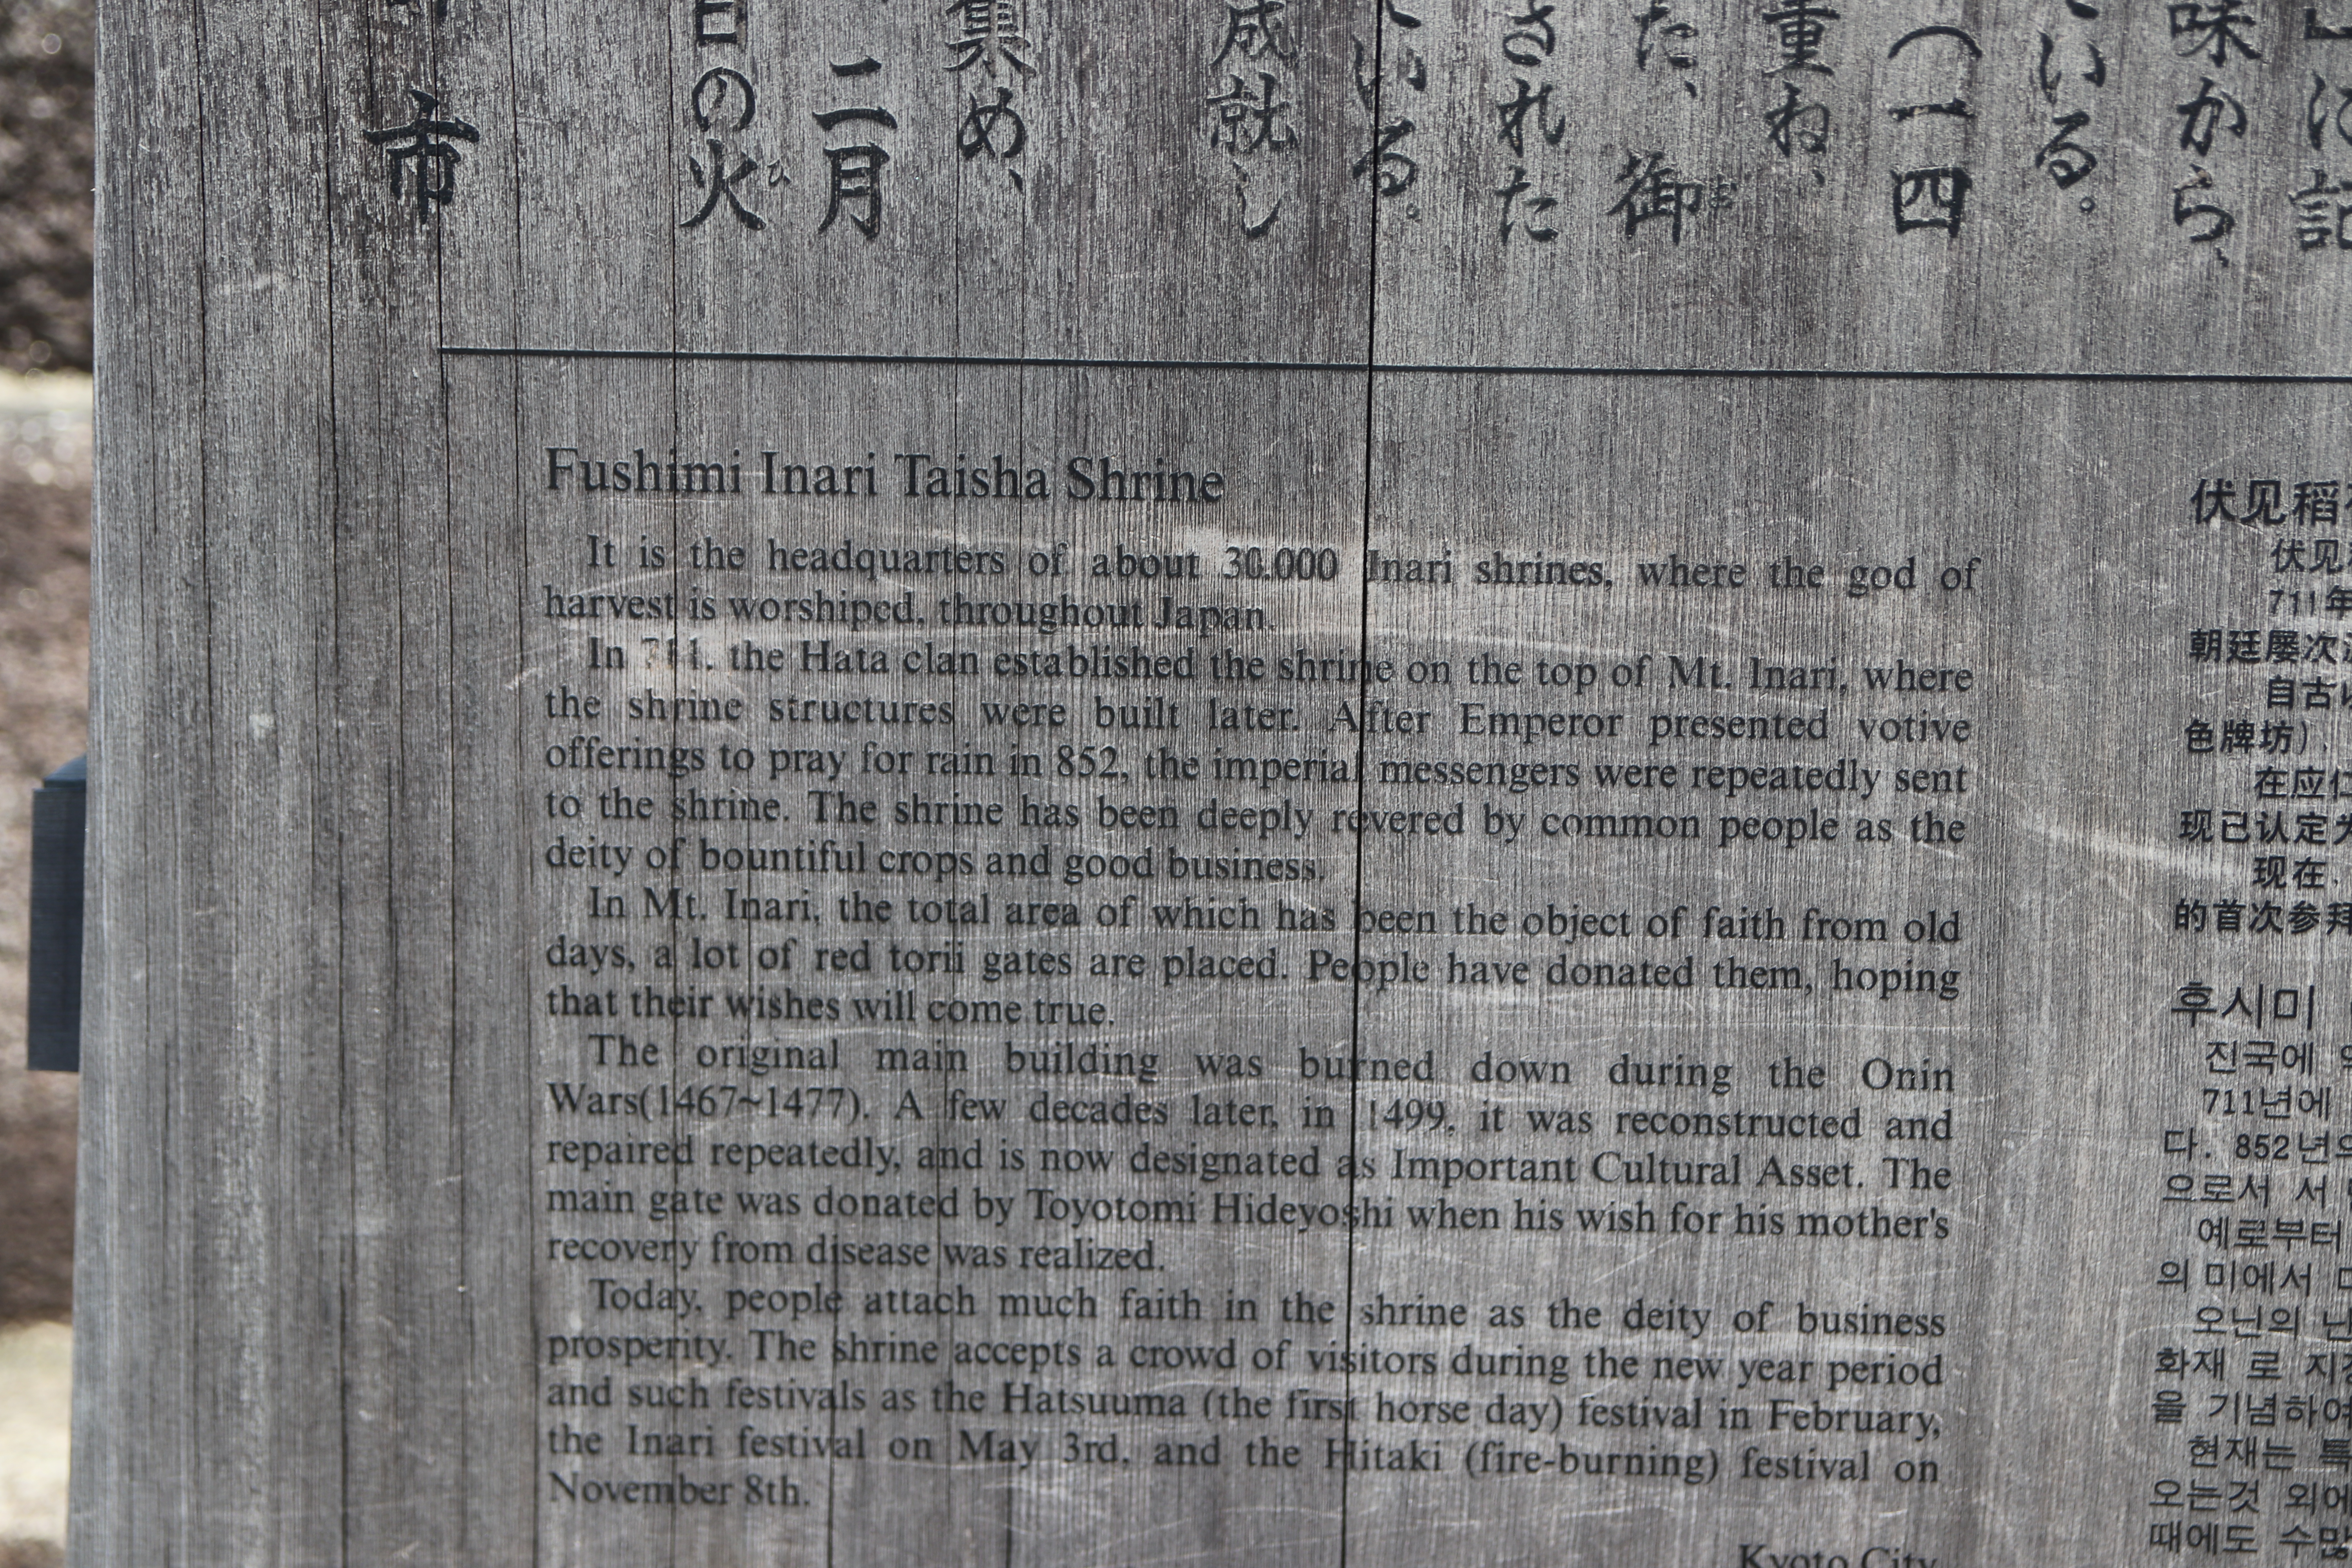 」に記
味から、
ている。
(一四
重ね、
た、御
された
ている。
成就し
集め、
二月
日の火
市
Fushimi Inari Taisha Shrine
It is the headquarters of about 30.000 Inari shrines, where the god of
harvest is worshiped, throughout Japan.
In 711, the Hata clan established the shrine on the top of Mt. Inari, where
the shrine structures were built later. After Emperor presented votive
offerings to pray for rain in 852, the imperial messengers were repeatedly sent
to the shrine. The shrine has been deeply revered by common people as the
deity of bountiful crops and good business.
In Mt. Inari, the total area of which has been the object of faith from old
days, a lot of red torii gates are placed. People have donated them, hoping
that their wishes will come true.
The original main building was burned down during the Onin
Wars(1467~1477). A few decades later, in 1499, it was reconstructed and
repaired repeatedly, and is now designated as Important Cultural Asset. The
main gate was donated by Toyotomi Hideyoshi when his wish for his mother's
recovery from disease was realized.
Today, people attach much faith in the shrine as the deity of business
prosperity. The shrine accepts a crowd of visitors during the new year period
and such festivals as the Hatsuuma (the first horse day) festival in February,
the Inari festival on May 3rd, and the Hitaki (fire-burning) festival on
November 8th.
Kyoto City
伏见稻
伏见
711年
朝廷屡次
自古
色牌坊)、
在应仁
现已认定为
现在、
的首次参拜
후시미
진국에
711년에
다. 852년의
으로서 서
예로부터
의 미에서
오닌의 난
화재 로 지정
을 기념하여
현재는 특
오는것 외에
때에도 수많